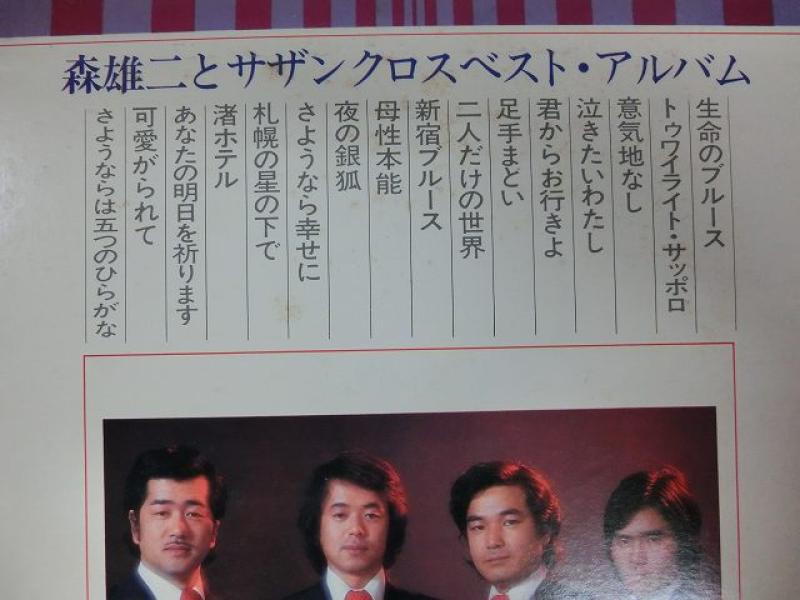 森雄二とサザンクロスベスト・アルバム
生命のブルース
トゥワイライト・サッポロ
意気地なし
泣きたいわたし
君からお行きよ
足手まとい
二人だけの世界
新宿ブルース
母性本能
夜の銀狐
さようなら幸せに
札幌の星の下で
渚ホテル
あなたの明日を祈ります
可愛がられて
さようならは五つのひらがな